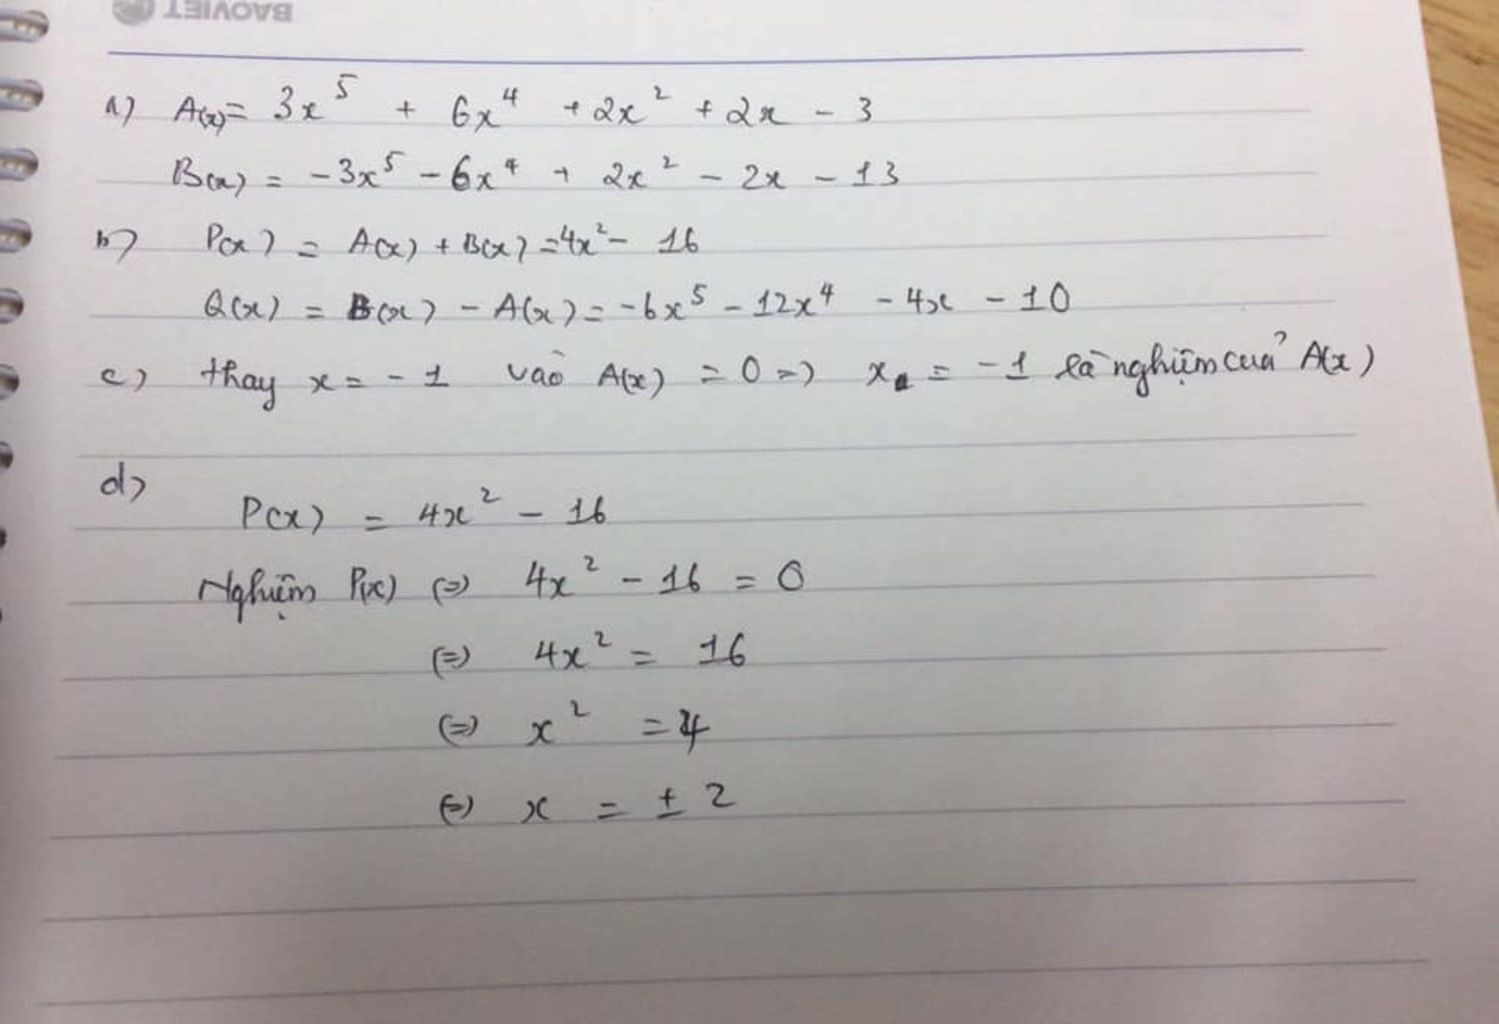 BAOVIET
a) A(x)= 3x⁵ + 6x⁴ + 2x² + 2x - 3
B(x) = -3x⁵ - 6x⁴ + 2x² - 2x - 13
b) P(x) = A(x) + B(x) = 4x² - 16
Q(x) = B(x) - A(x) = -6x⁵ - 12x⁴ - 4x - 10
c) thay x = -1 vào A(x) = 0 => x = -1 là nghiệm của A(x)
d)
P(x) = 4x² - 16
Nghiệm P(x) (=) 4x² - 16 = 0
(=) 4x² = 16
(=) x² = 4
(=) x = ± 2